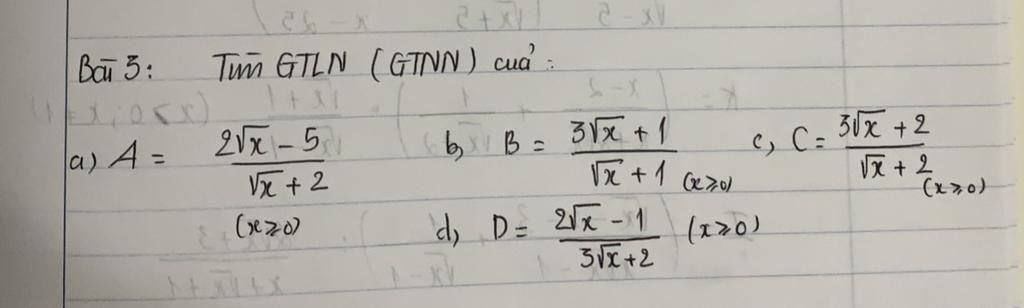 Bài 3: Tìm GTLN (GTNN) cuả :
a) A = (2√x - 5)/(√x + 2) (x≥0) b, B = (3√x + 1)/(√x + 1) (x≥0) c, C = (3√x + 2)/(√x + 2) (x≥0)
d, D = (2√x - 1)/(3√x + 2) (x≥0)